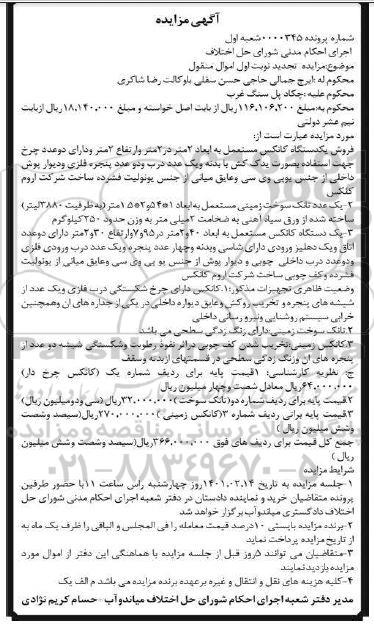 آگهی مزایده
شماره پرونده ۰۰۰۰۳۴۵شعبه اول
اجرای احکام مدنی شورای حل اختلاف
موضوع:مزایده تجدید نوبت اول اموال منقول
محکوم له :ایرج جمالی حاجی حسن سفلی باوکالت رضا شاکری
محکوم علیه :چکاد پل سنگ غرب
محکوم به:مبلغ ۱۱۶,۱۰۶,۲۰۰ریال از بابت اصل خواسته و مبلغ ۱۸,۱۴۰,۰۰۰ ریال ازبابت
نیم عشر دولتی
مورد مزایده عبارت است از:
فروش یکدستگاه کانکس مستعمل به ابعاد ۲متر در۴متر وارتفاع ۲متر ودارای دوعدد چرخ
جهت استفاده بصورت یدک کش با بدنه ویک عدد درب ودو عدد پنجره فلزی ودیوار پوش
داخلی از جنس یوپی وی سی وعایق میانی از جنس یونولیت فشرده ساخت شرکت اروم
کانکس
۲-یک عدد تانک سوخت زمینی مستعمل به ابعاد ۱*۲*۱۵متر (به ظرفیت ۳۸۸۰لیتر)
ساخته شده از ورق سیاه آهنی به ضخامت ۲میلی متر به وزن حدود ۲۵۰کیلوگرم
۳-یک دستگاه کانکس مستعمل به ابعاد ۲۰متر در۷و۹۵وارتفاع ۳۰و۲متر دارای دوعدد
اتاق ویک دهلیز ورودی دارای شاسی وبدنه وچهار عدد پنجره ویک عدد درب ورودی فلزی
ودوعدد درب داخلی چوبی و دیوار پوش از جنس یو پی وی سی وعایق میانی از یونولیت
فشرده وکف چوبی ساخت شرکت اروم کانکس
وضعیت ظاهری تجهیزات مذکور:۱.کانکس دارای چرخ شکستگی درب فلزی ویک عدد از
شیشه های پنجره و تخریب روکش وعایق دیواره داخلی در یکی از جداره های ان وهمچنین
خرابی سیستم روشنایی ونیرو رسانی داخلی
۲.تانک سوخت زمینی:دارای رنگ زدگی سطحی می باشد
۳.کانکس زمینی:تخریب شدن کف چوبی دراثر نفوذ رطوبت وشکستگی شیشه دو عدد از
پنجره های ان وزنگ زدگی سطحی در قسمتهای ازبدنه وسقف
ج نظریه کارشناسی: ۱قیمت پایه برای ردیف شماره یک (کانکس چرخ دار)
۶۴,۰۰۰,۰۰۰ریال معادل شصت وچهار میلیون ریال
۲قیمت پایه برای ردیف شماره دو(تانک سوخت)۳۲,۰۰۰,۰۰۰ریال(سی ودومیلیون ریال)
۳قیمت پایه برانی ردیف شماره ۳(کانکس زمینی)۲۷۰,۰۰۰,۰۰۰ریال(سیصد وشصت
وشش میلیون ریال )
جمع کل قیمت برای ردیف های فوق ۳۶۶,۰۰۰,۰۰۰ریال(سیصد وشصت وشش میلیون
ریال )
شرایط مزایده
۱-جلسه مزایده به تاریخ ۱۴۰۱,۰۲,۱۴روز چهارشنبه راس ساعت ۱۱با حضور طرفین
پرونده متقاضیان خرید و نماینده دادستان در دفتر شعبه اجرای احکام مدنی شورای حل
اختلاف دادگستری میاندوآب برگزار خواهد شد
۲-برنده مزایده بایستی ۱۰درصد قیمت معامله را فی المجلس و الباقی را ظرف یک ماه به
از تاریخ مزایده پرداخت نماید
۳-متقاضیان می توانند ۵روز قبل از جلسه مزایده با هماهنگی این دفتر از اموال مورد
مزایده بازدید نمایند
۴-کلیه هزینه های نقل و انتقال و غیره برعهده برنده مزایده می باشد م الف یک
مدیر دفتر شعبه اجرای احکام شورای حل اختلاف میاندوآب - حسام کریم نژادی
۰۲۱-۸۸۳۴۹۶۷۰-۵